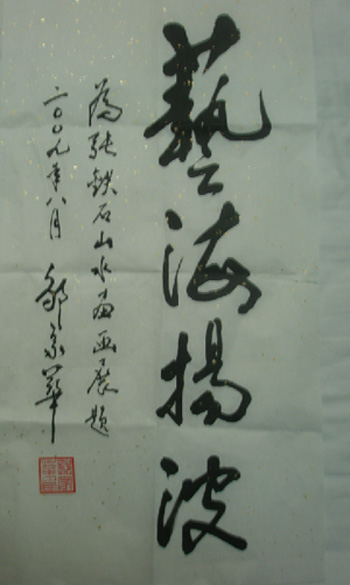 藝海揚波
為張鉄石山水畫画展題
二〇〇九年八月 郭京華